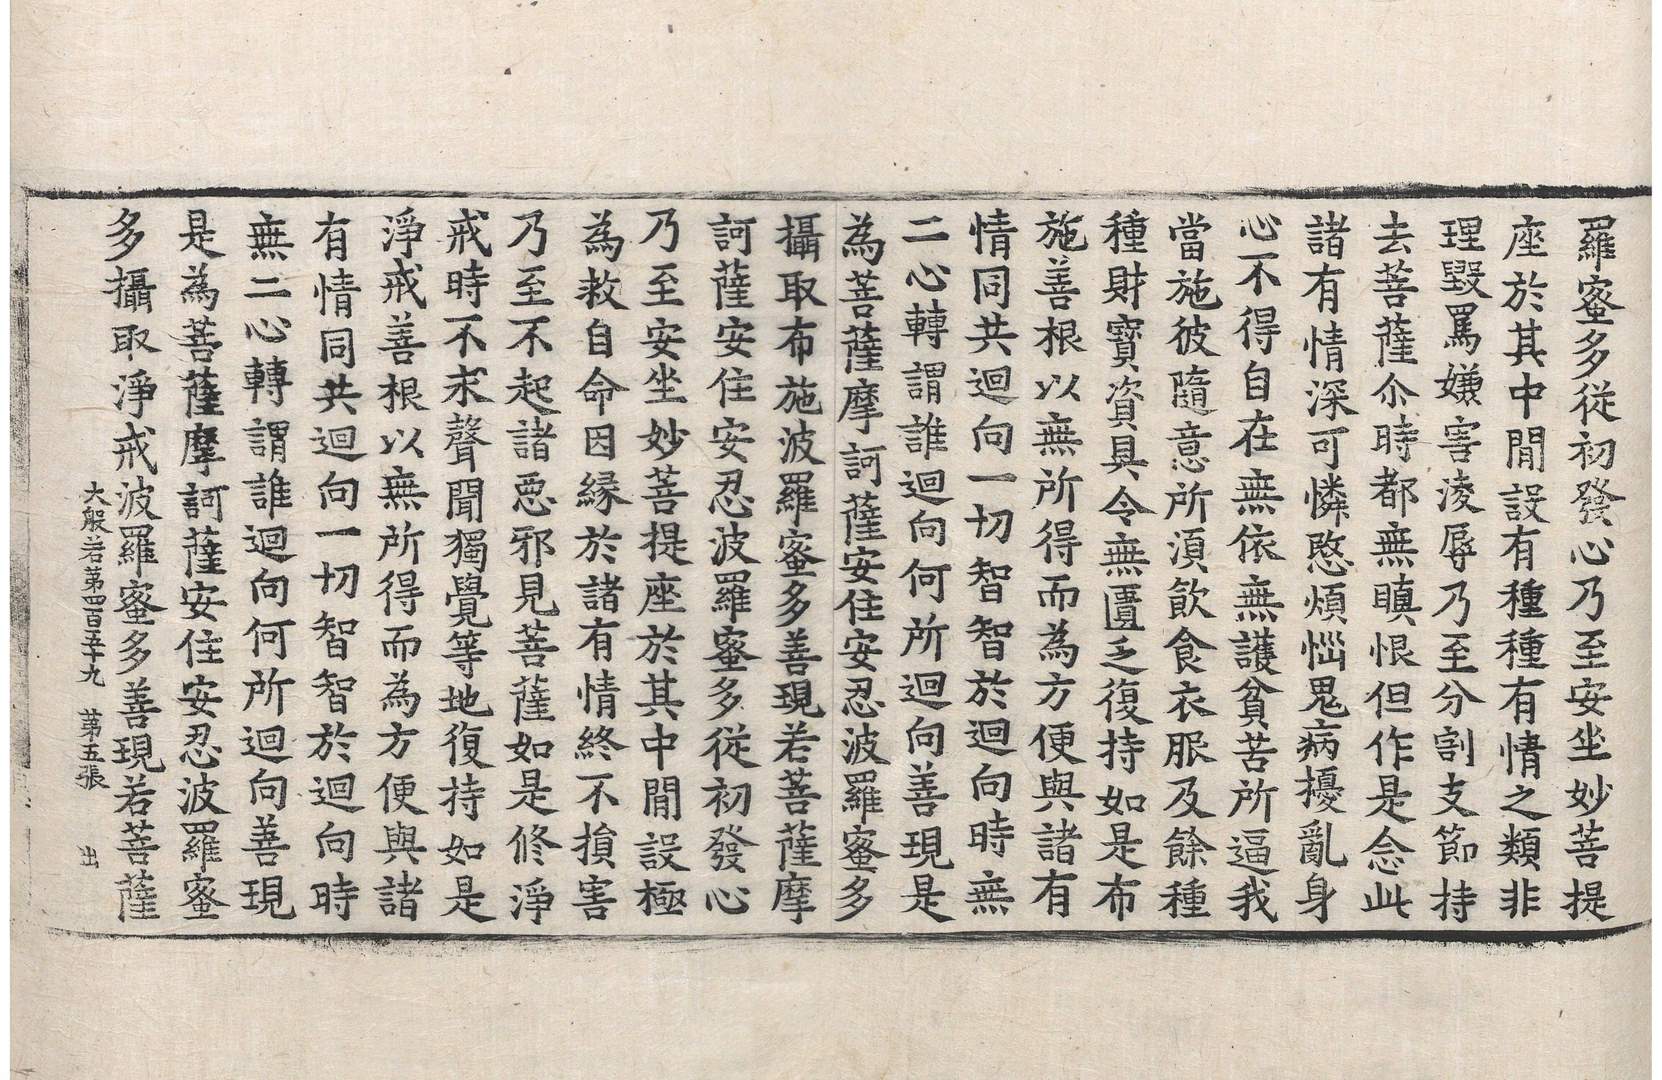 羅蜜多從初發心乃至安坐妙菩提
座於其中閒設有種種有情之類非
理毀罵嫌害淩辱乃至分割支節持
去菩薩尒時都無瞋恨但作是念此
諸有情深可憐愍煩惱鬼病擾亂身
心不得自在無依無護貧苦所逼我
當施彼隨意所湏飲食衣服及餘種
種財寶資具令無匱乏復持如是布
施善根以無所得而為方便與諸有
情同共迴向一切智智於迴向時無
二心轉謂誰迴向何所迴向善現是
為菩薩摩訶薩安住安忍波羅蜜多
攝取布施波羅蜜多善現若菩薩摩
訶薩安住安忍波羅蜜多從初發心
乃至安坐妙菩提座於其中閒設極
為救自命因緣於諸有情終不損害
乃至不起諸惡邪見菩薩如是修淨
戒時不求聲聞獨覺等地復持如是
淨戒善根以無所得而為方便與諸
有情同共迴向一切智智於迴向時
無二心轉謂誰迴向何所迴向善現
是為菩薩摩訶薩安住安忍波羅蜜
多攝取淨戒波羅蜜多善現若菩薩
大般若第四百五十九 第五張 出